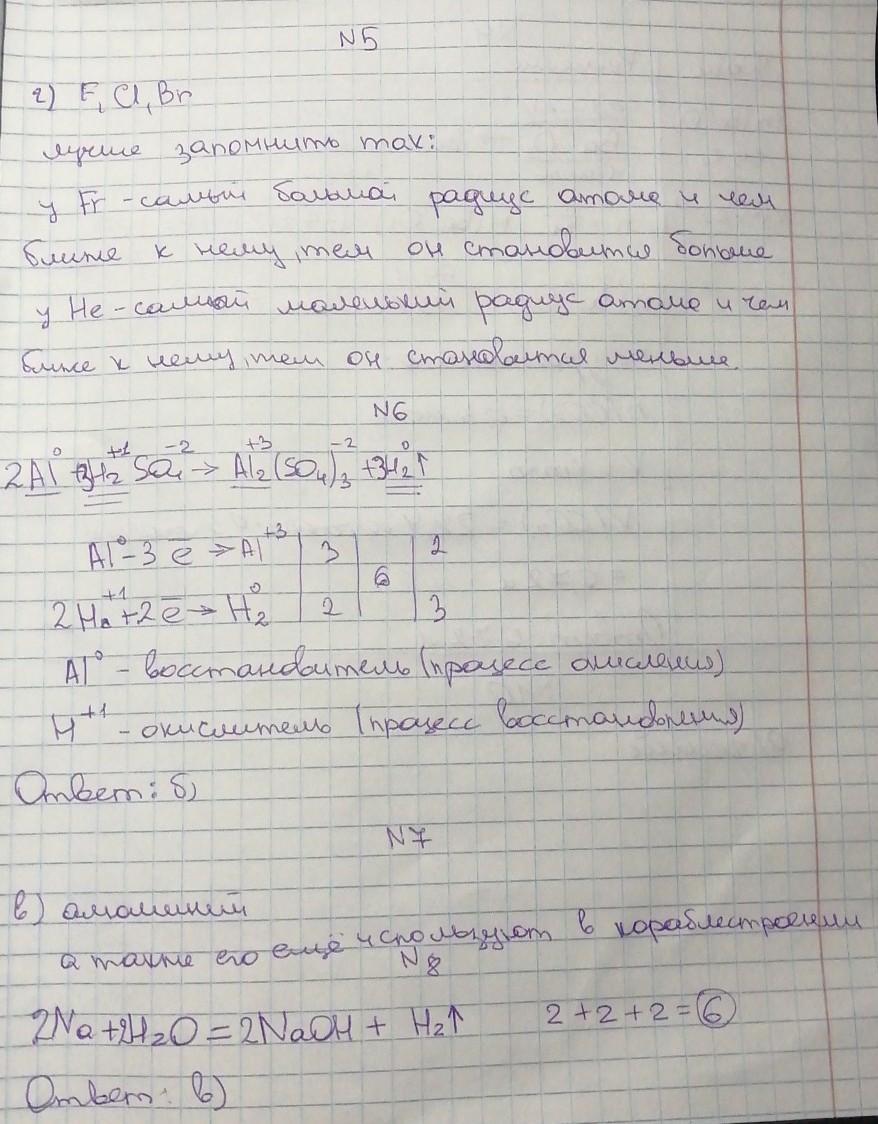 N5
г) F, Cl, Br
лучше запомнить так:
у Fr - самый большой радиус атома и чем
ближе к нему, тем он становится больше
у He - самый маленький радиус атома и чем
ближе к нему, тем он становится меньше.
N6
2Al⁰ + 3H₂⁺¹SO₄⁻² → Al₂⁺³(SO₄)₃⁻² + 3H₂⁰↑
Al⁰ - 3ē → Al⁺³ | 3 | | 2
6
2H⁺¹ + 2ē → H₂⁰ | 2 | | 3
Al⁰ - восстановитель (процесс окисления)
H⁺¹ - окислитель (процесс восстановления)
Ответ: б)
N7
в) алюминий
а также его ещё используют в кораблестроении
N8
2Na + 2H₂O = 2NaOH + H₂↑ 2 + 2 + 2 = 6
Ответ: в)